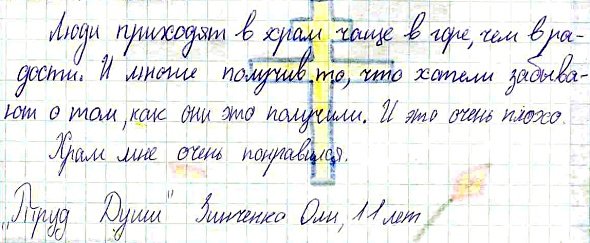 Люди приходят в храм чаще в горе, чем в ра-
дости. И многие получив то, что хотели забыва-
ют о том, как они это получили. И это очень плохо.
Храм мне очень понравился.
"Труд Души" Зинченко Оли, 11 лет